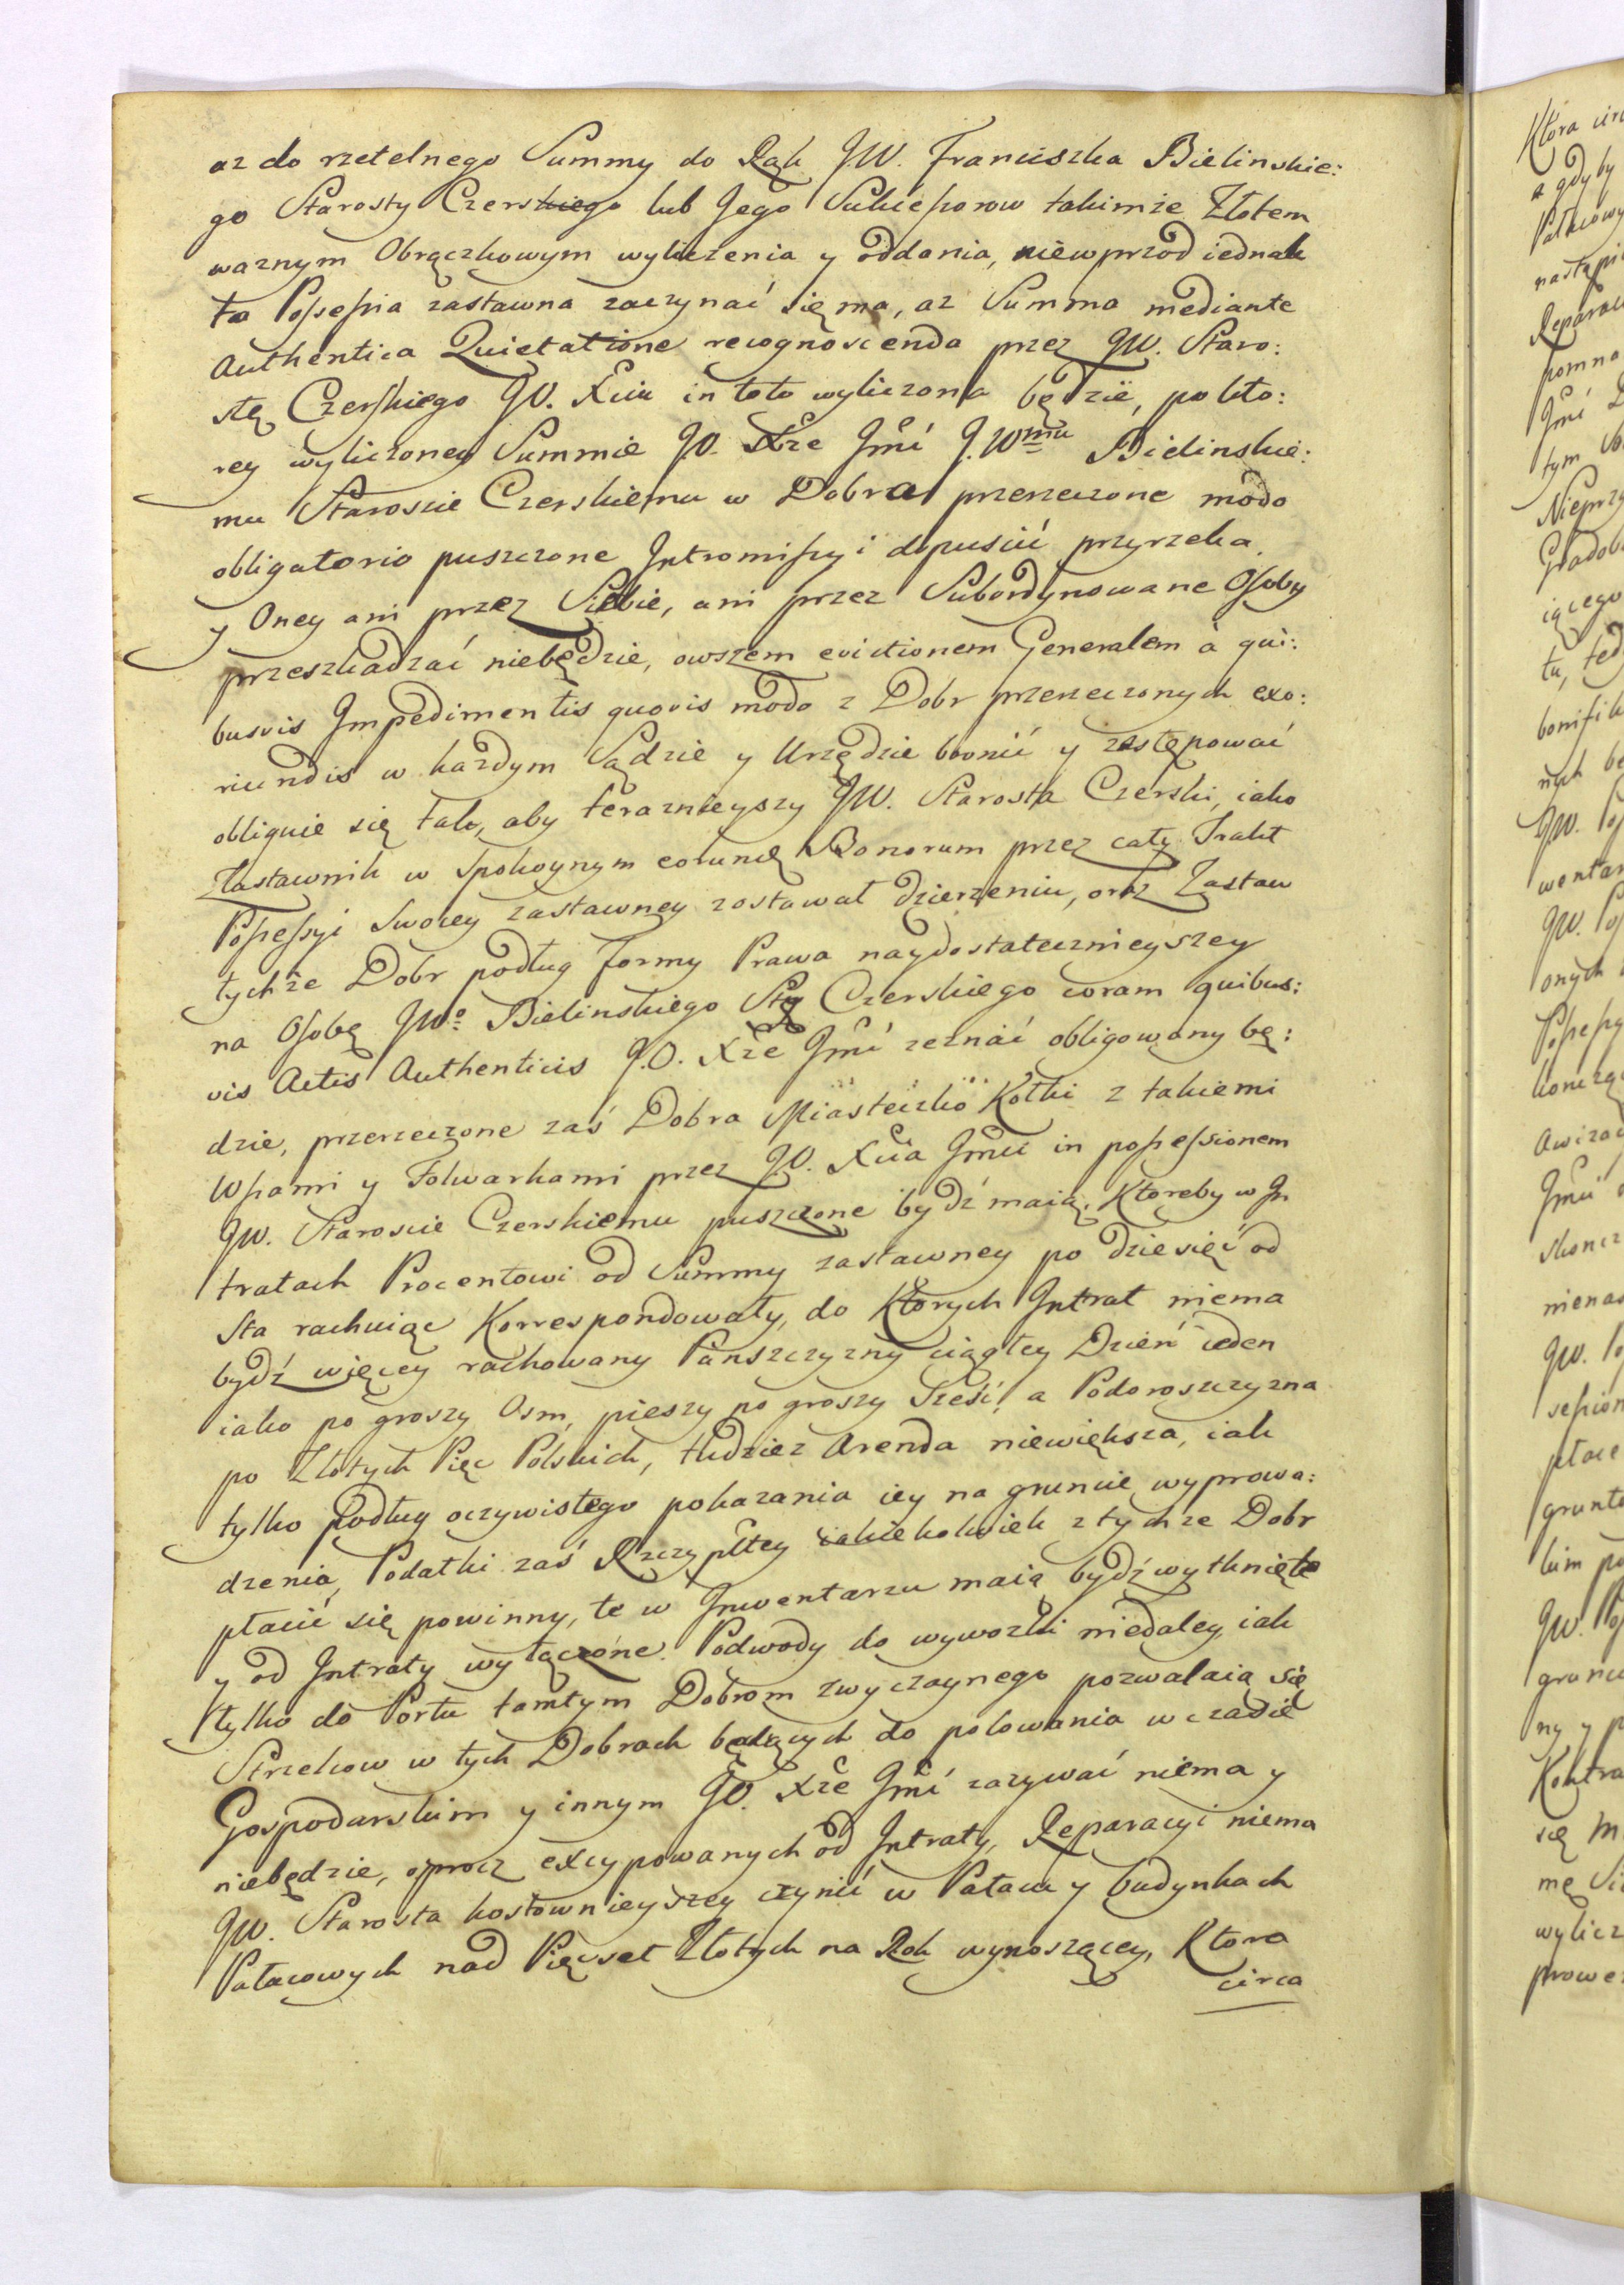 az do rzetelnego Summy do Rąk JW. Franciszka Bielinskie:
go Starosty Czerskiego lub Jego Sukcessorow takimże Złotem
waznym Obrączkowym wyliczenia y oddania, niewprzod iednak
ta Possessia zastawna zaczynać się ma, az Summa mediante
Authentica Quietatione recognoscenda przez JW. Staro:
stę Czerskiego JO. Xcia in toto wyliczona będzie, po kto:
rey wyliczoney Summie JO. Xże Jmć J.W<sup>mu</sup> Bielinskie:
mu Staroscie Czerskiemu w Dobra przerzeczone modo
obligatorio puszczone Intromissyi dopuscić przyrzeka,
y Oney ani przez Siebie, ani przez Subordynowane Osoby
przeszkadzać niebędzie, owszem evictionem Generalem à qui:
busvis Impedimentis quovis modo z Dobr przerzeczonych exo:
riundis w każdym Sądzie y Urzędzie bronić y zastępować
obliguie się tak, aby teraznieyszy JW. Starosta Czerski, iako
Zastawnik w Spokoynym eorundę Bonorum przez cały Trakt
Possessyi Swoiey zastawney zostawał dzierzeniu, oraz Zastaw
tychże Dobr podług Formy Prawa naydostatecznieyszey
na Osobę JW<sup>o</sup> Bielinskiego Stty Czerskiego coram quibus:
vis Actis Authenticis J.O. Xże Jmć zeznać obligowany bę:
dzie, przerzeczone zaś Dobra Miasteczko Kołki z takiemi
Wsiami y Folwarkami przez JO. Xcia Jmci in possessionem
JW. Staroscie Czerskiemu puszczone bydź maią, Ktoreby w In
tratach Procentowi od Summy zastawney po dziesięć od
Sta rachuiąc Korrespondowały, do Ktorych Intrat niema
bydź więcey rachowany Panszczyzny ciągłey Dzień ieden
iako po groszy Osm, pieszy po groszy Sześć, a Podoroszczyzna
po Złotych Pięc Polskich, tudziez Arenda niewiększa, iak
tylko podług oczywistego pokazania iey na gruncie wyprowa:
dzenia, Podatki zaś Rzczypltey iakiekolwiek z tychże Dobr
płacić się powinny, te w Inwentarzu maią bydź wytknięte
y od Intraty wyłączone. Podwody do wywozki niedaley, iak
tylko do Portu tamtym Dobrom zwyczaynego pozwalaią się
Strzelcow w tych Dobrach będących do polowania w czasie
Gospodarskim y innym JO. Xże Jmć zazywać niema y
niebędzie, oprocz excypowanych od Intraty, Reparacyi niema
JW. Starosta kosztownieyszey czynić w Pałacu y budynkach
Pałacowych nad Pięcset Złotych na Rok wynoszącey, Ktora
circa
Ktora circ
a gdyby
Reparac
pomna
Jmć
tym
iącego
bonifik
JW.
JW.
onych
Jmć
JW.
grunt
JW.
ny y p
Kontra
się
wylicz